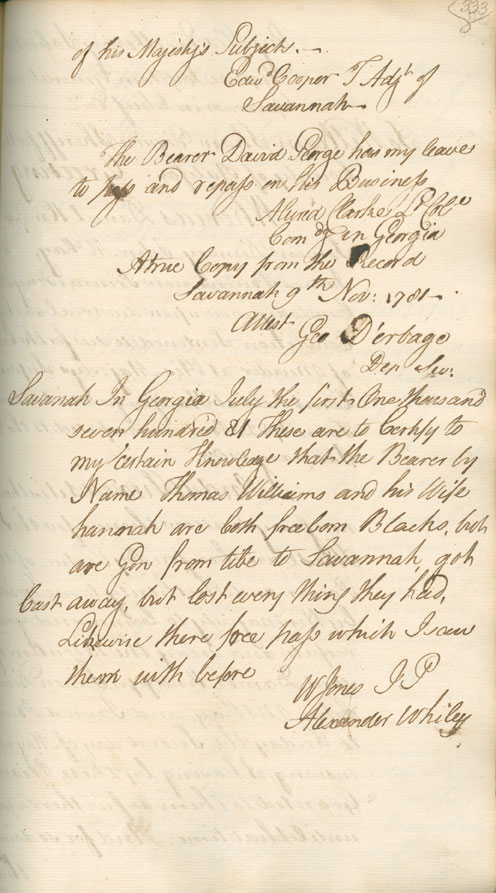 333
of his Majesty's Subjects.—
Edwd Cooper T Adjt of
Savannah—
The Bearer David George has my leave
to pass and repass on his Business
Alurd Clarke Lt Cole
Comdg in Georgia
A true Copy from the Record
Savannah 9th Nov: 1781.
Attest
Geo D'erbage
Depy Sec:
Savannah In Georgia July the first One thousand
seven hundred 81 These are to Certify to
my certain Knowledge that the Bearer by
Name Thomas Williams and his Wife
hannah are both freeborn Blacks, but
are Gon from to Savannah, got
Cast away, but lost every thing they had,
Likewise there free pass which I saw
them with before
W Jones J P
Alexander Whiley